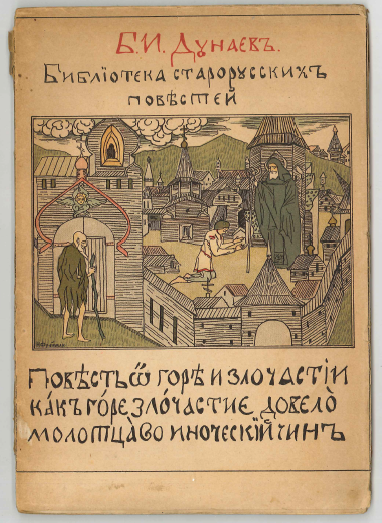 Б. И. Дунаевъ.
Библіотека старорусскихъ
повѣстей
Повѣсть ѿ горѣ и злочастіи
ка́къ го́ре зло́частие довело̀
молотца̀ во иноческиӥ чинъ